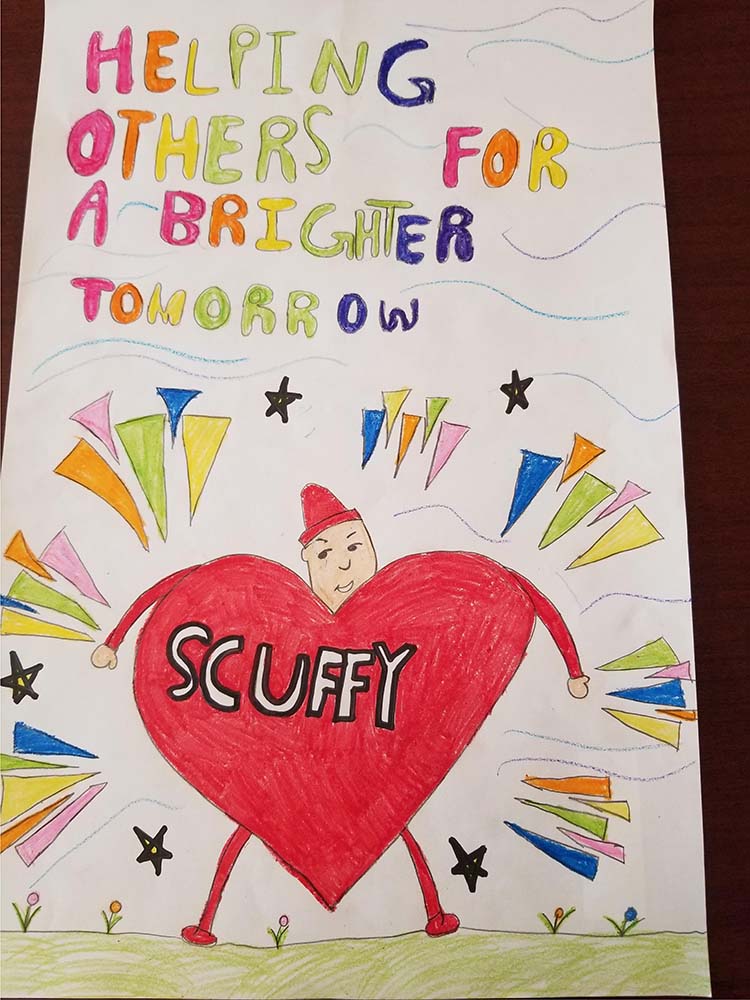 HELPING
OTHERS FOR
A BRIGHTER
TOMORROW
SCUFFY